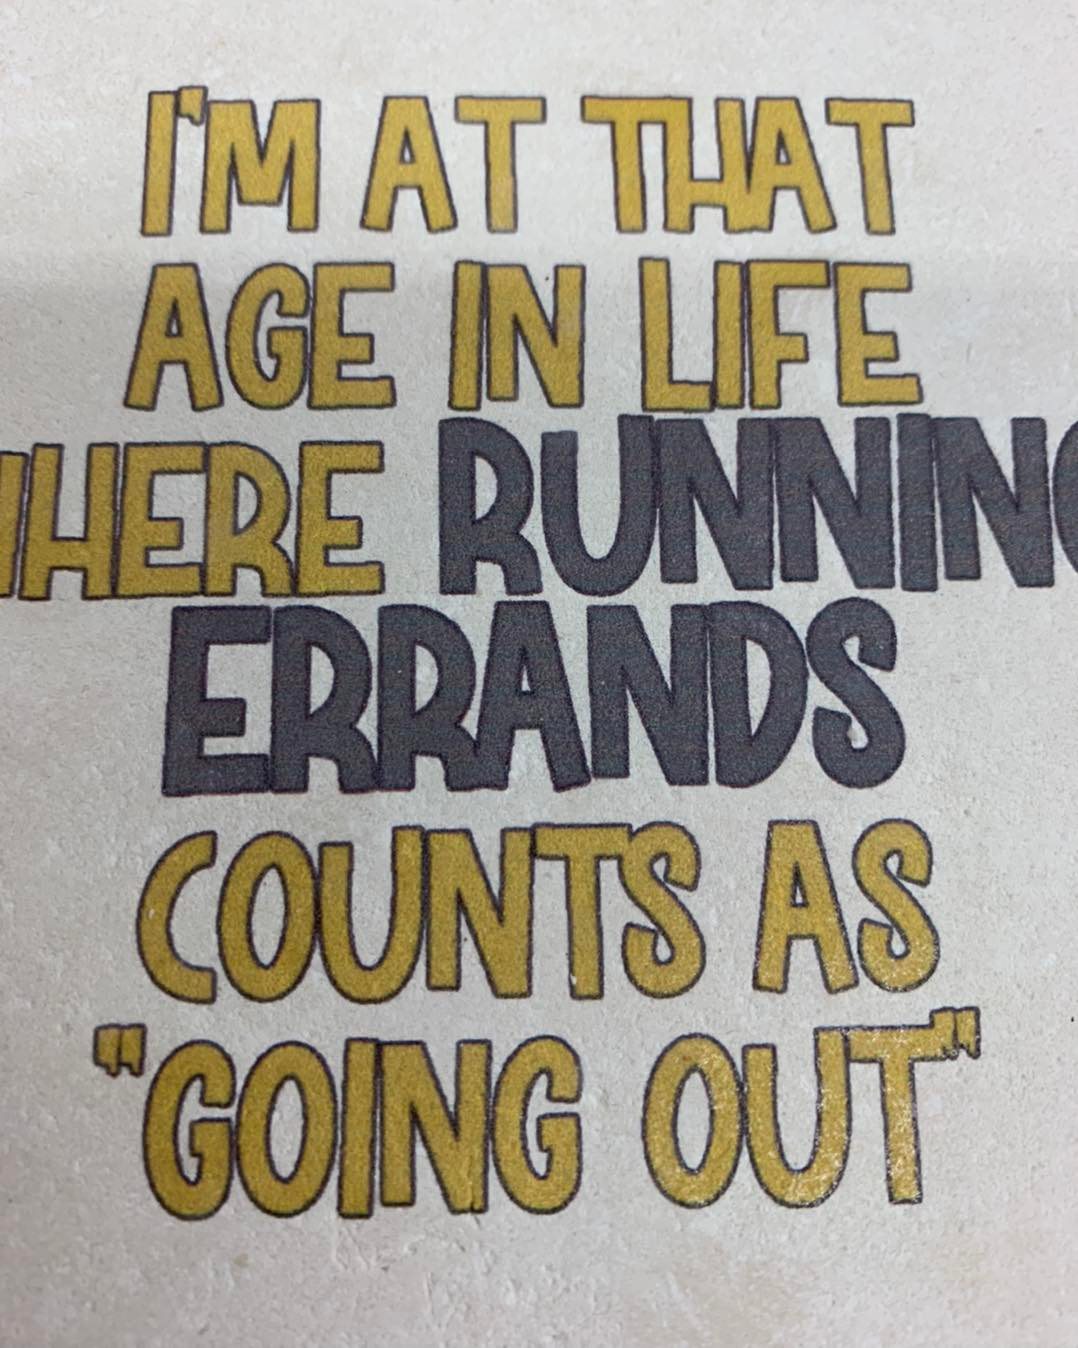 I'M AT THAT
AGE IN LIFE
WHERE RUNNING
ERRANDS
COUNTS AS
"GOING OUT"